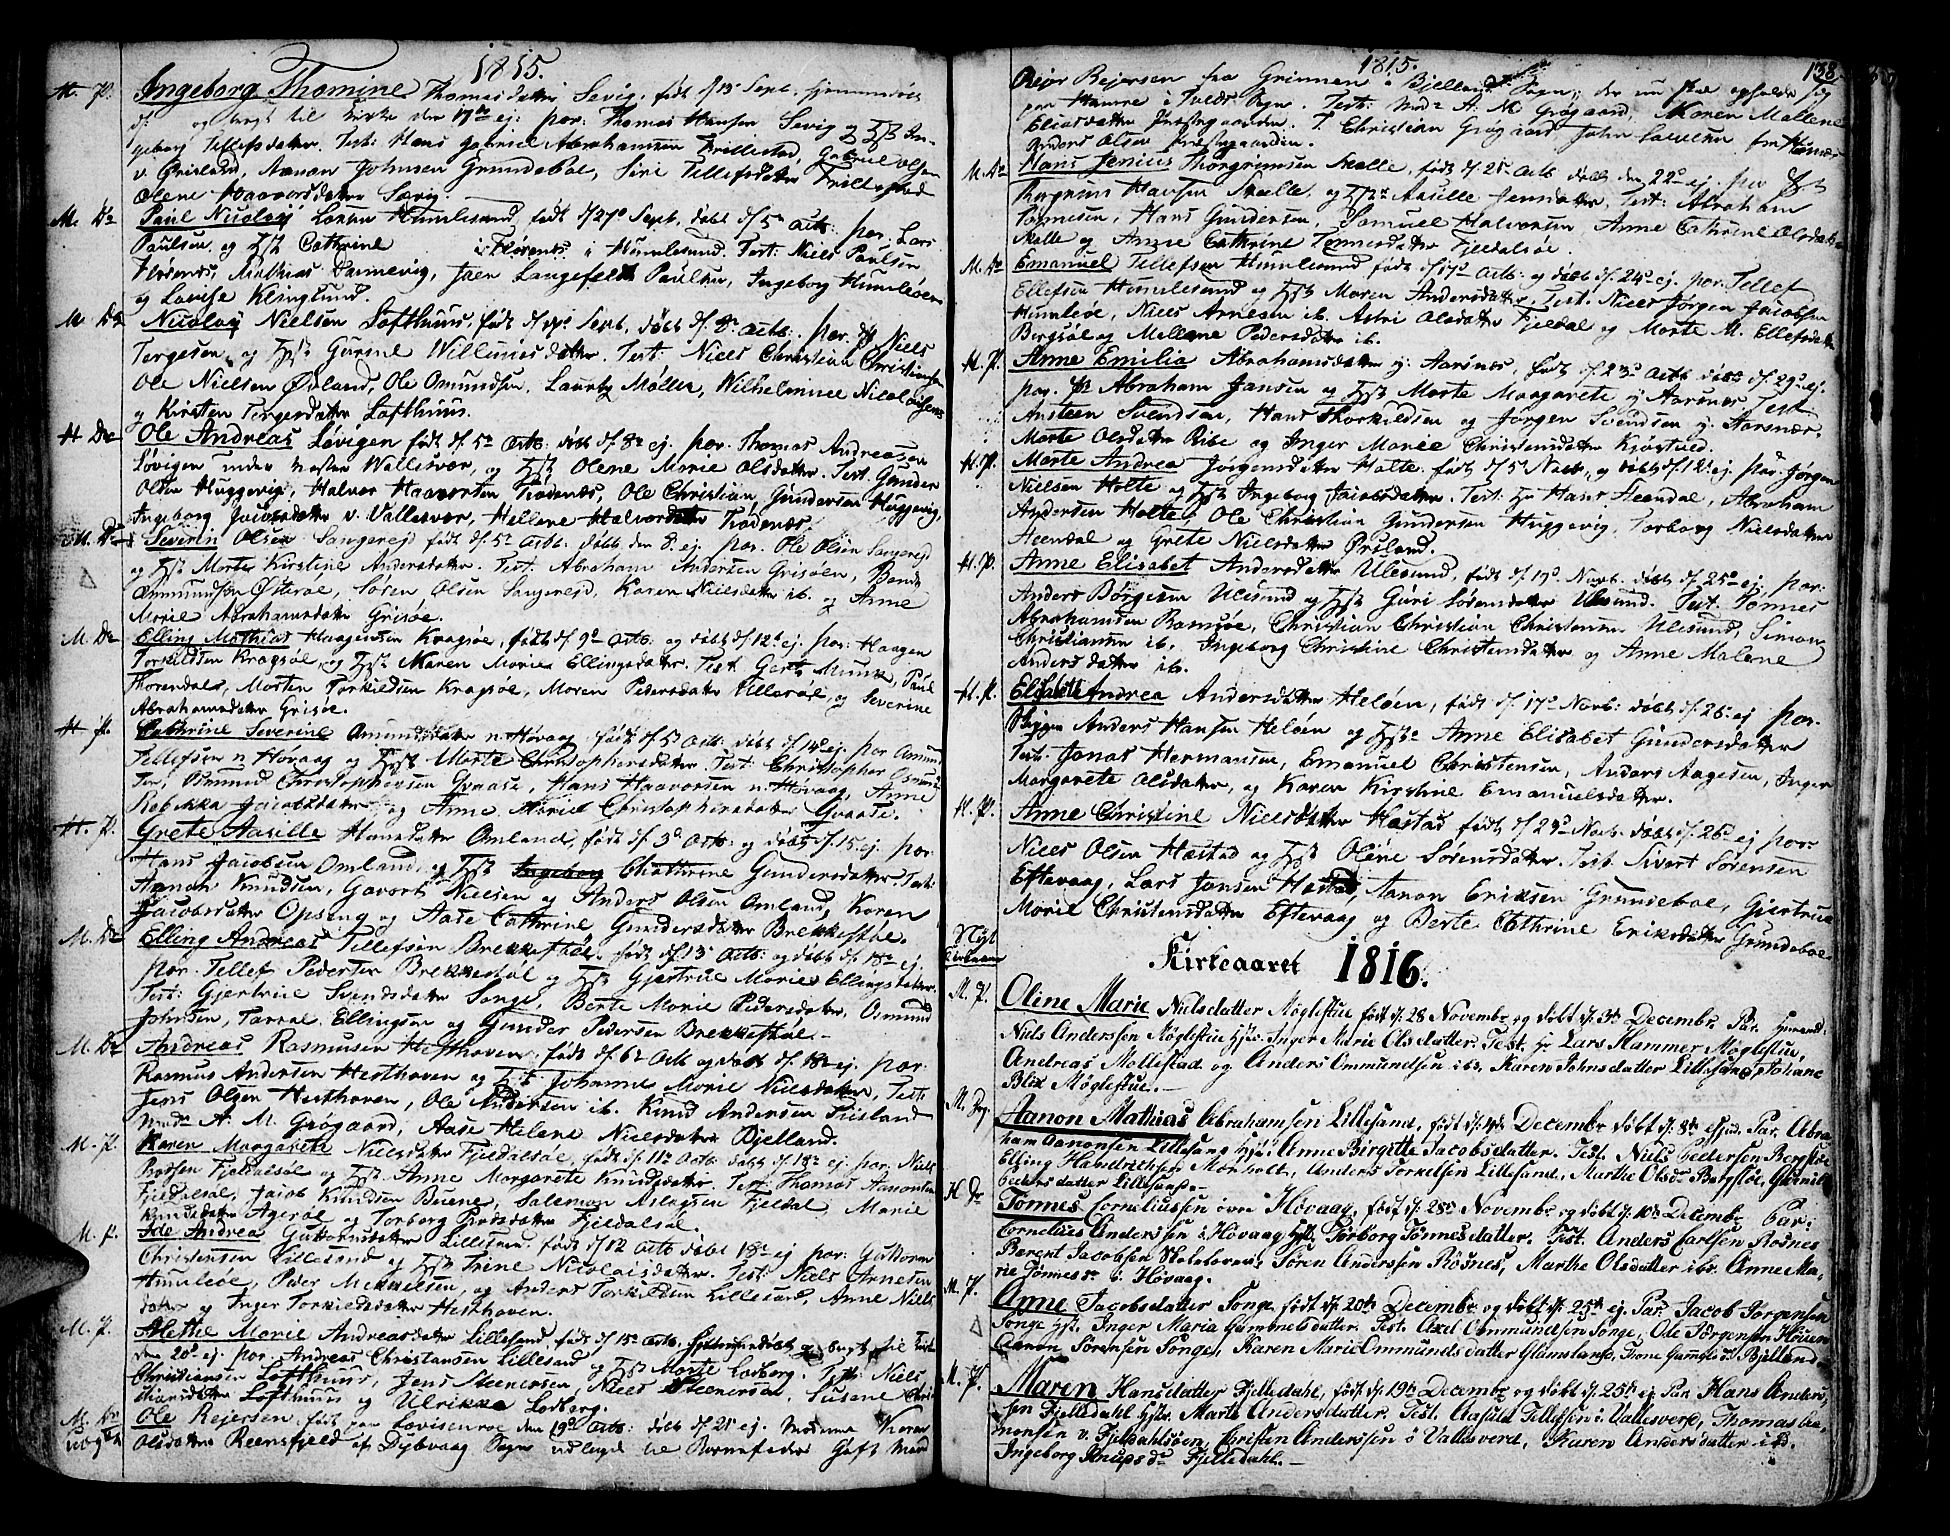 1815.
H. P. Ingeborg Thomine Thomasdatter Sevig, født d. 13 Sept. hjemmedøbt
og bragt til Kirke den 17de ej. par: Thomas Hansen Sevig og Hst In-
geborg Tellefsdatter. Test: Hans Gabriel Abrahamsen Trillestad, Gabriel Olsen
v. Grisland, Aanon Johnsen Grundeboe, Siri Tellefsdatter Trillestad
Olene Haavorsdatter Sævig.
M. D. Paul Nicolay Larsen Humlesund, født d. 27 Sept. døbt d. 5 Octb. par. Lars
Paulsen og Hst Cathrine i Humlesund. Test: Niels Paulsen
Mathias Dannevig, Joen Langefeldt Paulsen, Ingeborg Humløen
og Lovise Klinglund.
M. D. Nicolay Nielsen Lofthuus, født d. Sept. døbt d. 8 Octb. par. Niels
Tergesen og Hst Gurine Willumsdatter. Test: Niels Christian Christiansen
Ole Nielsen Øvland, Ole Omundsen, Lauritz Møller, Wilhelmine Nicolaisen
og Kirsten Tergesdatter Lofthuus.
H. D. Ole Andreas Løvigen født d. 5 Octb. døbt d. 8 ej. par. Thomas Andreasen
Løvigen Wallisvær, og Hst Olene Marie Olsdatter. Test. Gunder
Olsen Huggevig, Halvor Haavorsen Trødenæs, Ole Christian Gundersen Huggevig,
Ingeborg Jacobsdatter v. Vallesvær, Hellene Halvorsdatter Trødenæs.
M. D. Severin Olsen Sangereid født d. 5 Octb. døbt den 8 ej. par. Ole Olsen Sangereid
og Hst Morte Kirstine Andersdatter. Test. Abraham Andersen Grisøen, Bendt
Ommundsen Østerøe, Søren Olsen Sangereid, Karen Nielsdatter ib. og Anne
Marie Abrahamsdatter Grisøe.
M. D. Elling Mathias Haagensen Kragsøe, født d. 9 Octb. og døbt d. 12 ej. par: Haagen
Torkildsen Kragsøe, og Hst Maren Marie Ellingsdatter. Test Gert Munk, Paul
Thorendals, Morten Torkieldsen Kragsøe, Maren Pedersdatter Ullerøe og Severine
Abrahamsdatter Grisøe.
H. P. Cathrine Severine Omundsdatter n: Høvaag født d. 5 Octb. døbt d. 14 ej. par Omund
Tellefsen n Høvaag og Hst Morte Christophersdatter. Test. Christopher
Osmund Christophersen Qvaase, Hans Haavorsen n. Høvaag, Anne
Rebekka Jacobsdatter og Anne Marie Christophersdatter Qvaase.
H. P. Grete Aasille Hansdatter Omland, født d. 3 Octb. og døbt d. 15 ej. par.
Hans Jacobsen Omland og Hst Ingeborg Cathrine Gundersdatter. Test.
Aanon Knudsen, Govort Nielsen og Anders Olsen Omland, Karen
Jacobsdatter Opsang og Aase Cathrine Gundersdatter Brekkestøe.
M. D. Elling Andreas Tellefsen Brekkestøe. født d. 13 Octb. og døbt d. 18 ej.
par. Tellef Pedersen Brekkestøe og Hst Gjertrue Marie Ellingsdatter.
Test: Gjertrue Svendsdatter Songe, Berte Marie Pedersdatter, Osmund
Johnsen, Taraal Ellingsen og Gunder Pedersen Brekkestøe.
M. D. Andreas Rasmusen Hesthaven, født d. 6 Octb og døbt d. 18 ej. par.
Rasmus Andersen Hesthaven og Hst Johanne Marie Nielsdatter, Test.
Jens Olsen Hesthaven, Ole Andersen ib. Knud Andersen Tiisland
Md A. M. Grøgaard, Aase Helene Nielsdatter Bjelland.
M. P. Karen Margarete Nielsdatter Fjeldalsøe, født d. 11 Octb døbt d. 18 ej. par. Niels
Berthsen Fjeldalsøe og Hst Anne Margarete Knudsdatter. Test Thomas Aanonsen
Fjeldalsøe, Jacob Knudsen Buene, Salemon Aslagsen Fjeldal, Marie
Knudsdatter Agerøe og Torborg Berthsdatter Fjeldalsøe.
M. P. Ide Andrea Guttormsdatter Lillesand. født d. 12 Octb døbt 18 ej par: Guttorm
Christensen Lillesund og Hst Trine Nicolaisdatter. Test: Niels Arnesen
Humleøe, Peder Mekkelsen, og Anders Torkildsen Lillesund, Anne Niels
datter og Inger Torkieldsdatter Hesthaven.
M. P. Alethe Marie Andreasdatter Lillesand, født d. 15 Octb. hjemmedøbt og bragt til Kirke
den 20 ej. par. Andreas Christiansen Lillesand og Hst Morte Lodberg. Test: Niels
Christiansen Lofthuus, Jens Steenersen, Niels Steenersen, Susane Chri
stiansdatter Lofthuus og Ulrikke Lodberg.
M. D. Ole Rejersen, født paa Lovisenroe den 19 Octb. døbt d. 21 ej. Moderne Karen
uægte Olsdatter Reensfjeld af Dybvaag Sogn udlagde til Barnefader Gift Mand
1815. 138
Rejer Rejersen fra Grinnen i Bjelland Sogn; der nu skal opholde sig
paa Hamre i Tveds Sogn. Test: Md A. M. Grøgaard, Maren Mallene
Eliasdatter Præstegaarden. T. Christian Grøgaard John Larsen fra Hamre
Anders Olsen Præstegaarden.
M. D. Hans Jenius Thorgrimsen Skalle, født d. 21 Octb døbt den 22 ej. par
Thorgrim Hansen Skalle, og Hst Aasille Jensdatter, Test: Abraham
Tønnesen, Hans Gundersen, Samuel Halvorsen, Anne Cathrine Olsdatter
Skalle og Anne Cathrine Tønnesdatter Fjeldalsøe.
M. D. Emanuel Tellefsen Humlesund født d. 17 Octb: og døbt d. 24 ej. par. Tellef
Ellefsen Humlesund og Hst Maren Andersdatter, Test. Niels Jørgen Jacobsen
Humløe, Niels Arnesen ib. Astri Olsdatter Fjeldal og Morte M. Ellefsdatter
Bergsøe og Mallene Pedersdatter ib.
H. P. Anne Emilia Abrahamsdatter y: Aarsnes, født d. 23 Octb døbt d. 29 ej.
par. Abraham Jansen og Hst Morte Margarete y: Aarsnes Test
Ansteen Svendsen, Hans Thorkildsen og Jørgen Svendsen y: Aarsnær.
Morte Olsdatter Ribe og Inger Marie Christensdatter Kjøstvedt.
H. P. Morte Andrea Jørgensdatter Holte født d. 5 Novb, og døbt d. 12 ej. par. Jørgen
Nielsen Holte og Hst Ingeborg Jacobsdatter. Test: Hr Hans Steendal, Abraham
Andersen Holte, Ole Christian Gundersen Huggevig, Torborg Nielsdatter
Steendal og Grete Nielsdatter Øvsland.
H. P. Anne Elisabet Andersdatter Ulesund, født d. 19 Novb. døbt d. 25 ej. par:
Anders Børgesen Ulesund og Hst Guri Sørensdatter Ulesund. Test. Tønnes
Abrahamsen Ramsøe, Christian Christian Christensen Ulesund, Simon
Christiansen ib. Ingeborg Christine Christensdatter og Anne Malene
Andersdatter ib.
H. P. Elisabeth Andrea Andersdatter Heløen, født d. 17 Novb: døbt d. 26 ej par.
Skipper Anders Hansen Heløen og Hst Anne Elisabet Gundersdatter
Test: Jonas Hermansen, Emanuel Christensen, Anders Aagesen, Inger
Margarete Olsdatter, og Karen Kirstine Emanuelsdatter.
H. P. Anne Christine Nielsdatter Hæstad født d. 23 Novb. døbt d. 26 ej par
Niels Olsen Hæstad og Hst Olene Sørensdatter. Test. Sivert Sørensen
Eftevaag, Lars Jansen Hæstad, Aanon Eriksen Grundeboe, Gjertrue
Marie Christensdatter Eftevaag og Berte Cathrine Eriksdatter Grundeboe
Nyt
Kirkeaar
Kirkeaaret 1816.
M. P. Oline Marie Nielsdatter Møglestue født d. 28 Novembr og døbt d. 3de Decembr. Par.
Niels Anderssen Møglestue Hst Inger Marie Olsdatter. Test. Hr Lars Hammer Møglestue,
Andreas Mollestad og Anders Ommundsen ibd. Karen Johnsdatter Lillesand, Johane
Blix Møglestue.
M. Dg. Aanon Mathias Abrahamsen Lillesand, født d. 4de Decembr døbt d. 8de ejusd. Par. Abra
ham Aanonsen Lillesand Hst Anne Birgitte Jacobsdatter. Test. Niels Pedersen Bergstøe
Elling Handrichsen Morholt, Anders Torkelsen Lillesand, Marthe Olsdr Bergstøe, Gunnild
Pedersdatter Lillesand.
H. D. Tønnes Corneliussen øvre Høvaag, født d. 28 Novembr og døbt d. 10de Decembr Par.
Cornelius Anderssen i Høvaag Hst Torborg Tønnesdatter. Test. Anders Carlsen Røsnes
Berent Jacobsen Skaleloven, Søren Anderssen Røsnes, Marthe Olsdatter ibd. Anne Ma,
rie Tønnesdr i Høvaag.
M. P. Anne Jacobsdatter Songe født d. 20de Decembr og døbt d. 25de ej. Par. Jacob Jørgensen
Songe Hst. Inger Maria Gummelsdatter. Test. Axel Ommundsen Songe, Ole Jørgensen Høvien
Aanon Sørensen Songe, Karen Marie Ommundsdatter Glamslands, Trone Gumels Dr Bjelland
M. P. Maren Hansdatter Fjelledahl, født d. 19de Decembr og døbt d. 25de ej Par Hans Anders,
sen Fjelledahl Hst. Marte Andersdatter. Test. Aasuld Tellefsen i Vallesverd, Thomas Sa
monsen v. Fjeldahlsøen, Christen Anderssen i Vallesverd, Karen Andersdatter ibd.
Ingeborg Knudsdr Fjelledahl.